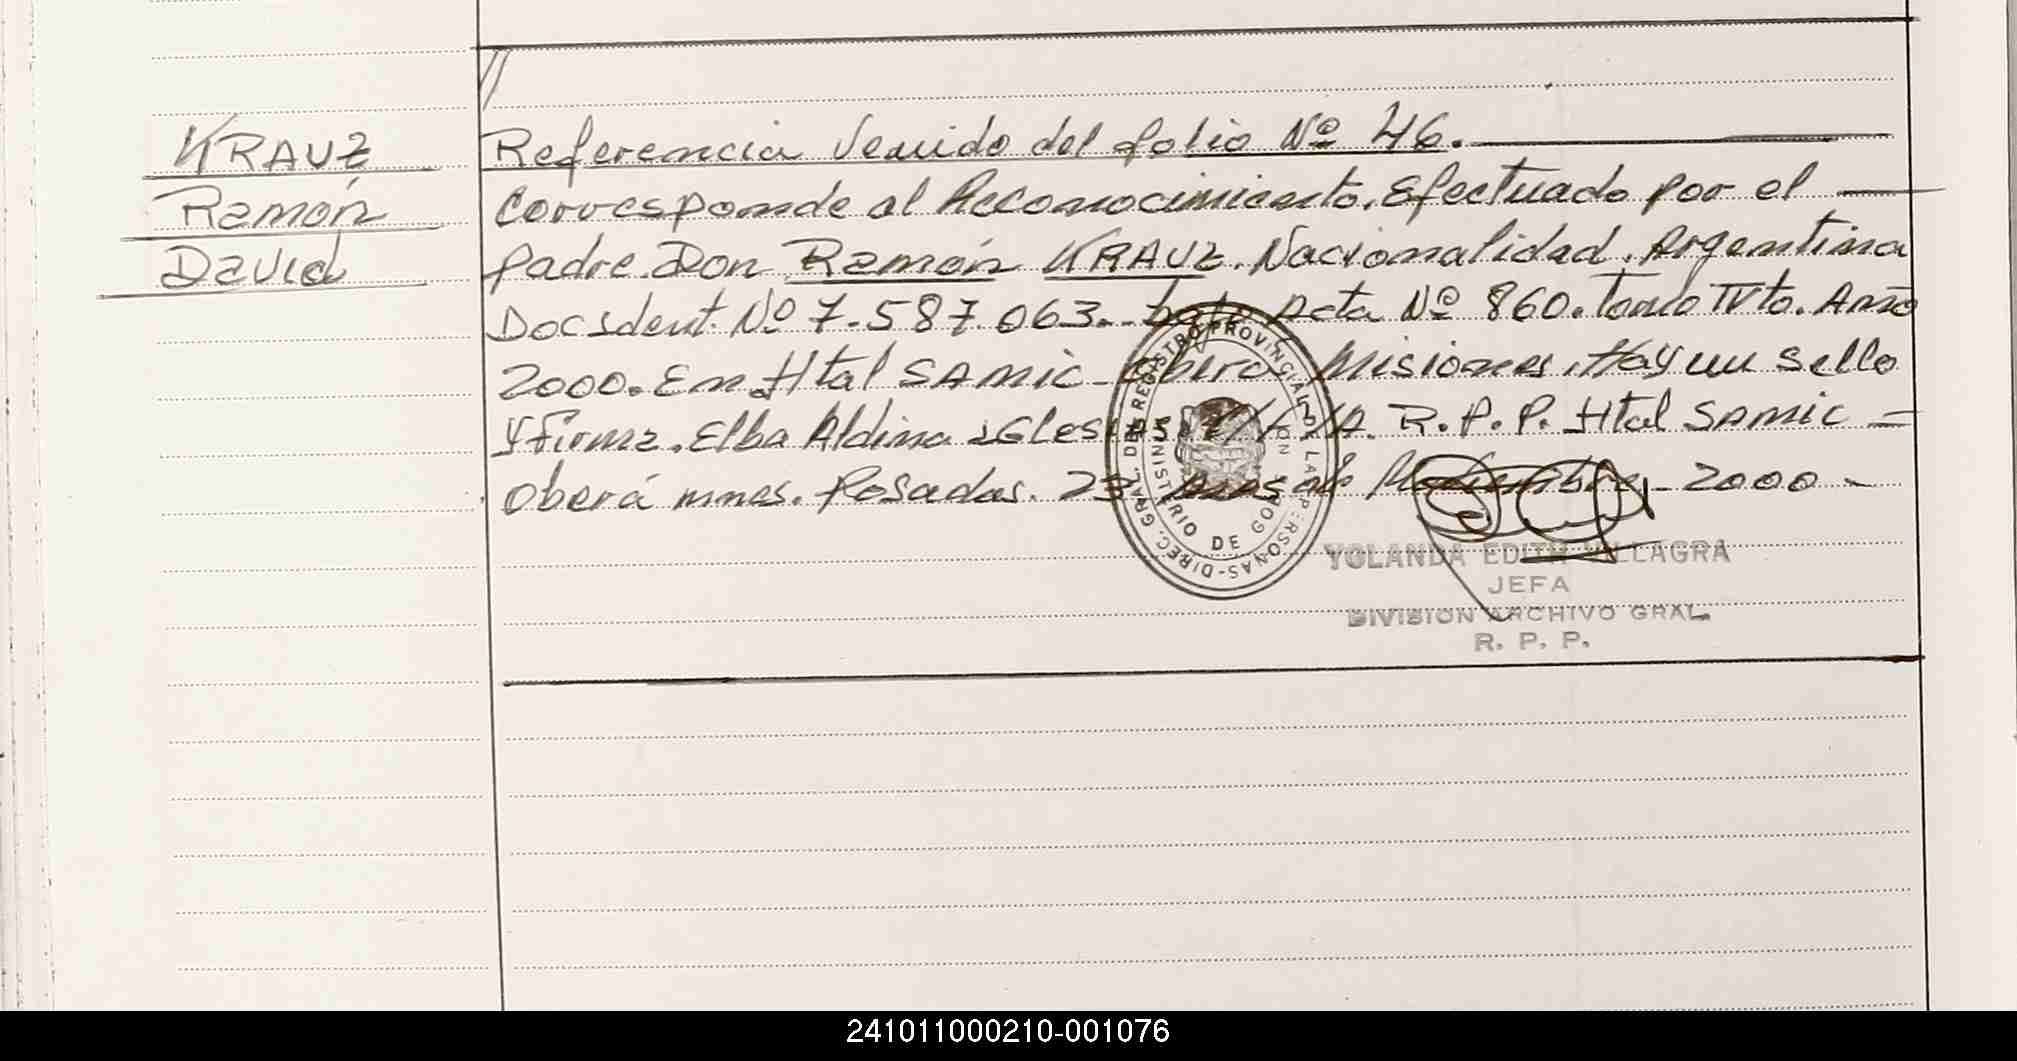 KRAUZ
Ramón
David
Referencia Venido del folio Nº 46.
Corresponde al Reconocimiento. Efectuado por el
padre Don Ramón KRAUZ. Nacionalidad. Argentina
Doc Ident. Nº 7.587.063. bajo Acta Nº 860. Tomo IVto. Año
2000. En Htal SAMIC - Oberá - Misiones. Hay un Sello
y firma. Elba Aldina Iglesias R. P. P. Htal SAMIC =
Oberá mnes. Posadas. 23 2000 -
DIREC. GRAL. DEL REGISTRO PROVINCIAL DE LAS PERSONAS
MINISTERIO DE GOBERNACION
YOLANDA EDITH VILLAGRA
JEFA
DIVISION ARCHIVO GRAL.
R. P. P.
241011000210-001076